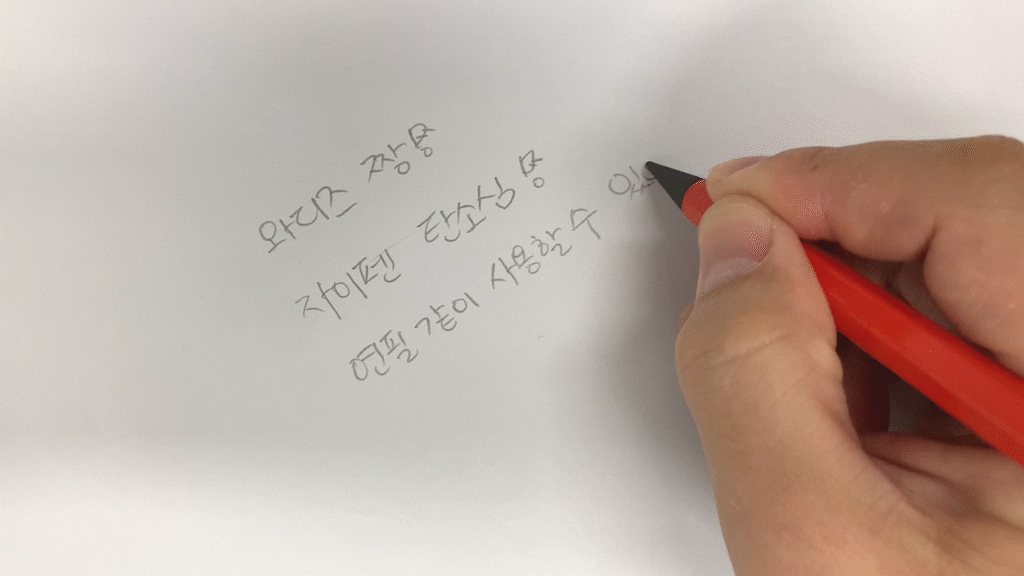 와디즈 짱용
자이펜 탄소심용
연필 같이 사용할 수 있